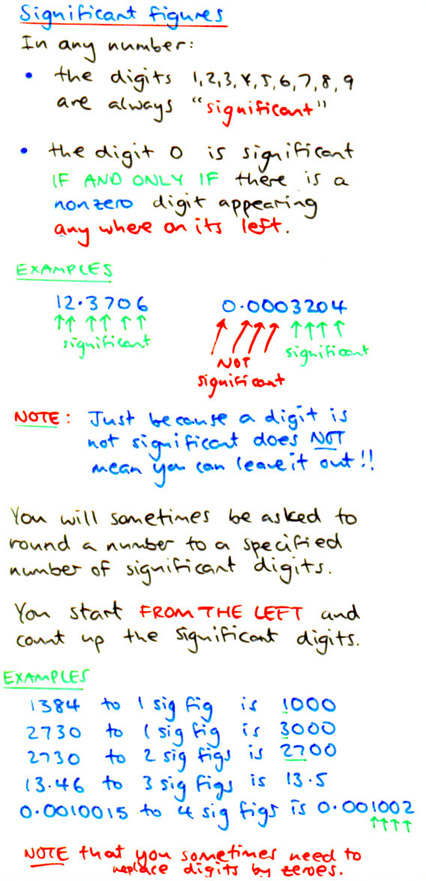 Significant figures
In any number:
• the digits 1,2,3,4,5,6,7,8,9
are always "significant"
• the digit 0 is significant
IF AND ONLY IF there is a
nonzero digit appearing
any where on its left.
EXAMPLES
12.3706 0.0003204
significant NOT significant
significant
NOTE: Just because a digit is
not significant does NOT
mean you can leave it out!!
You will sometimes be asked to
round a number to a specified
number of significant digits.
You start FROM THE LEFT and
count up the significant digits.
EXAMPLES
1384 to 1 sig fig is 1000
2730 to 1 sig fig is 3000
2730 to 2 sig figs is 2700
13.46 to 3 sig figs is 13.5
0.0010015 to 4 sig figs is 0.001002
NOTE that you sometimes need to
replace digits by zeroes.